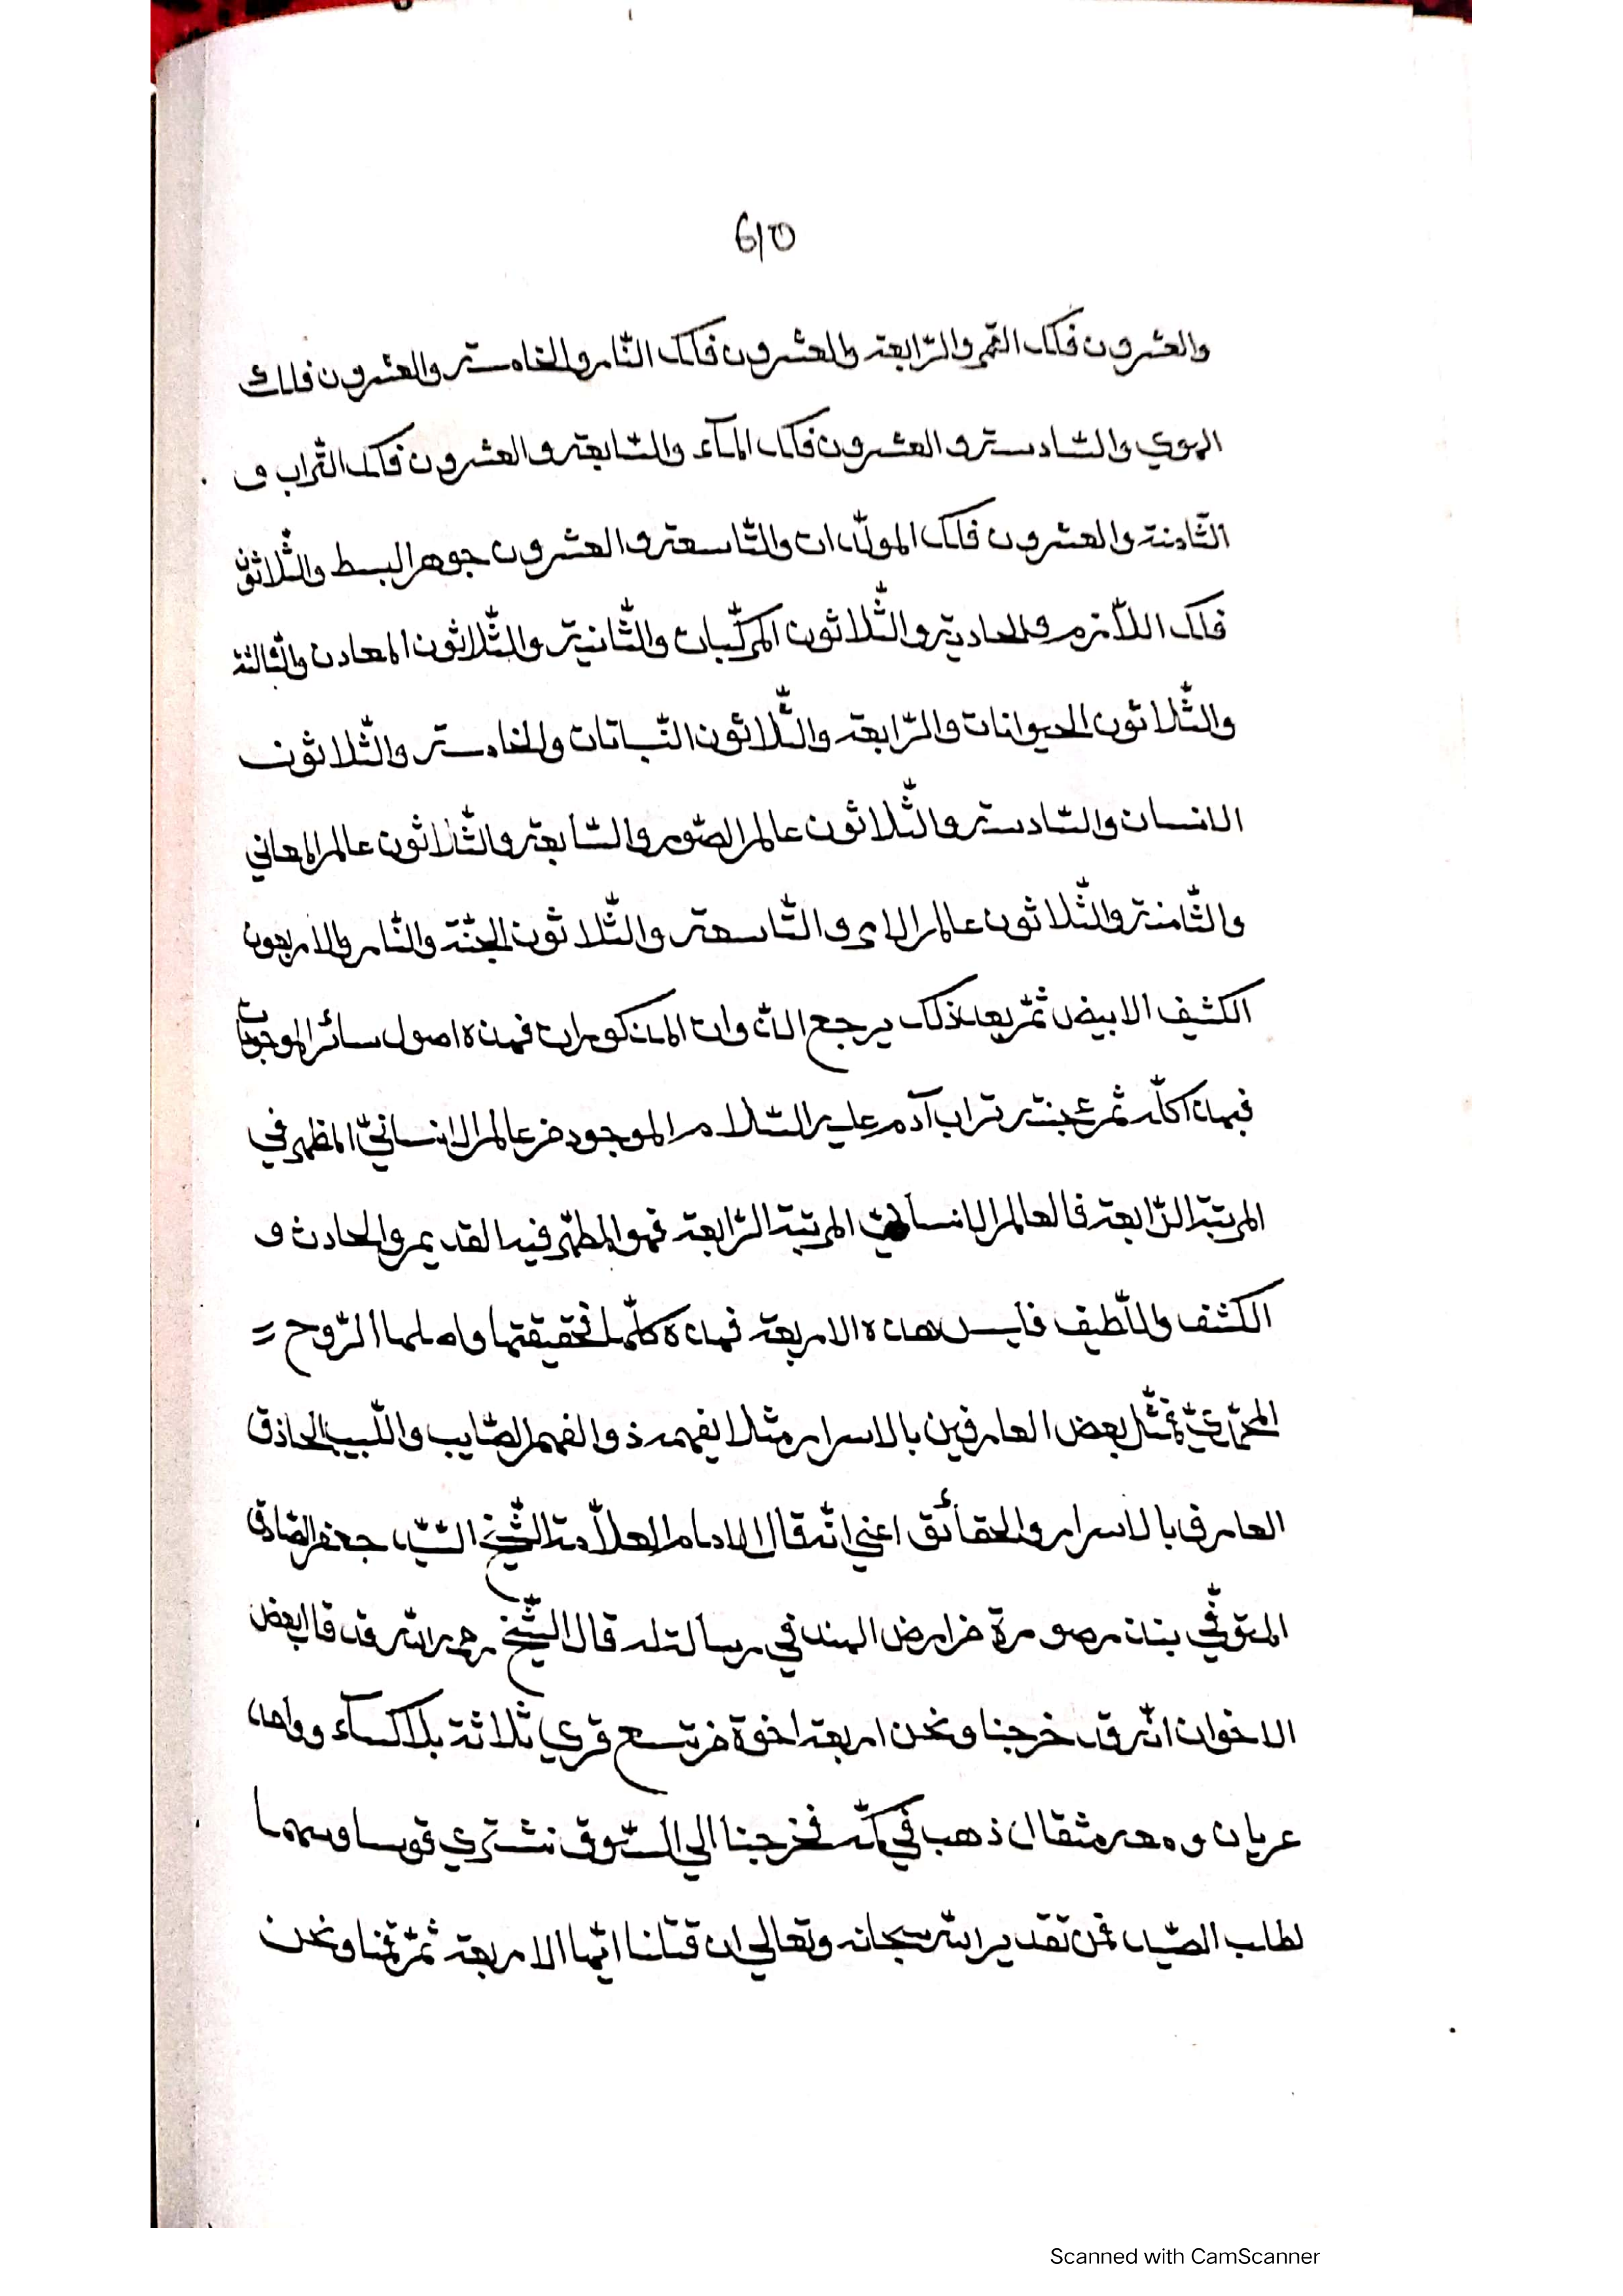 610
والعشرون فلك القمر والرّابعة والعشرون فلك النّار والخامسة والعشرون فلك
الهوي والسّادسة والعشرون فلك المآء والسّابعة والعشرون فلك التّراب و
الثّامنة والعشرون فلك المولّدات والتّاسعة والعشرون جوهر البسط والثّلاثون
فلك اللّازم والحادية والثّلاثون المركّبات والثّانية والثّلاثون المعادن والثّالثة
والثّلاثون الحيوانات والرّابعة والثّلاثون النّباتات والخامسة والثّلاثون
الانسان والسّادسة والثّلاثون عالم الصّور والسّابعة والثّلاثون عالم المعاني
والثّامنة والثّلاثون عالم الامر والتّاسعة والثّلاثون الجنّة والنّار والاربعون
الكثيف الابيض ثمّ بعد ذلك يرجع الدّوان المذكوران فهذه اصول سائر الموجودات
فهذا كلّه ثم عجنة تراب آدم عليه السّلام الموجود من عالم الانسانيّ المظهر في
المرتبة الرّابعة فالعالم الانساني المرتبة الرّابعة فهو المظهّر فيه القديم والحادث و
الكثف واللّطيف فليس هذه الاربعة فهذه كلّها فحقيقتها واصلها الرّوح =
المحمّديّ فمثّل بعض العارفين بالاسرار مثلا يفهمه ذو الفهم الصّايب واللّبيب الحاذق
العارف بالاسرار والحقآئق اعني انّه قال الامام العلّامة الشّيخ السّيّد جعفر الصّادق
المتوفّي ببندر صورة من ارض الهند في رسالة له قال الشّيخ رحمه الله قد قال بعض
الاخوان انّه قد خرجنا ونحن اربعة اخوة من تسع قري ثلاثة بلا كسآء وواحد
عريان ومعه مثقال ذهب في كمّه فخرجنا الي السّوق نشتري قوسا وسهما
لطلب الصّيد فمن تقدير الله سبحانه وتعالي ان قتلنا ايّها الاربعة ثمّ قمنا ونحن
Scanned with CamScanner